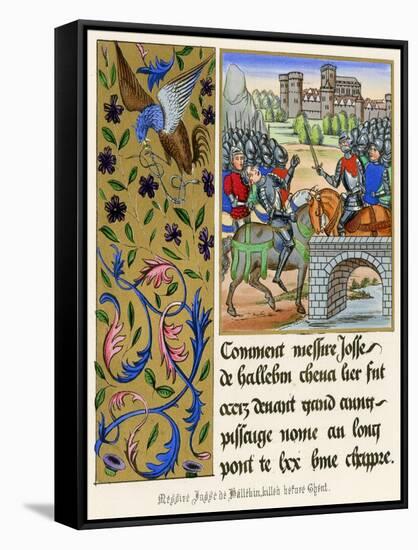 Comment messire Josse
de hallebin cheualier fut
occiz deuant gand au ung
passaige nome au long
pont le lxx bme chappre.
Messire Josse de Hallebin, killed before Ghent.